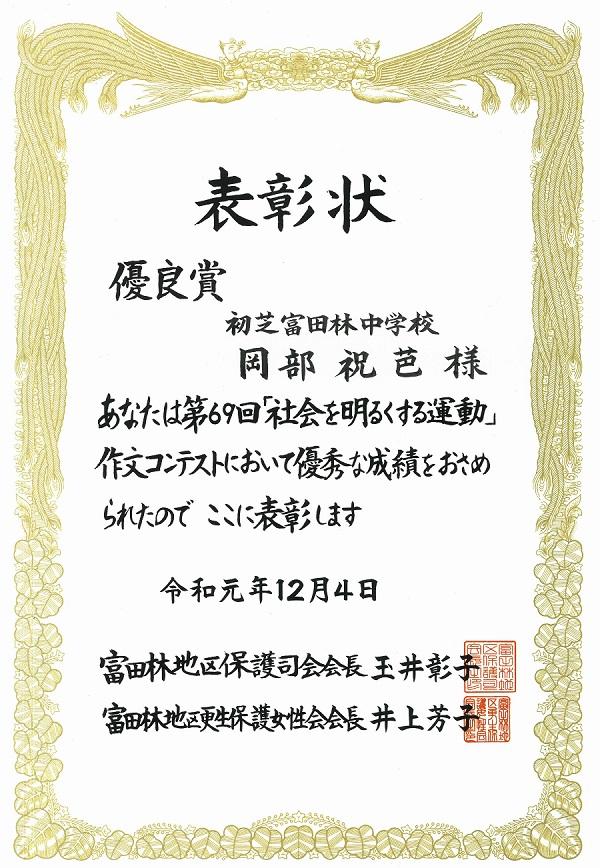 表彰状
優良賞
初芝富田林中学校
岡部 祝芭 様
あなたは第69回「社会を明るくする運動」
作文コンテストにおいて優秀な成績をおさめ
られたので ここに表彰します
令和元年12月4日
富田林地区保護司会会長 玉井彰子
富田林地区更生保護女性会会長 井上芳子